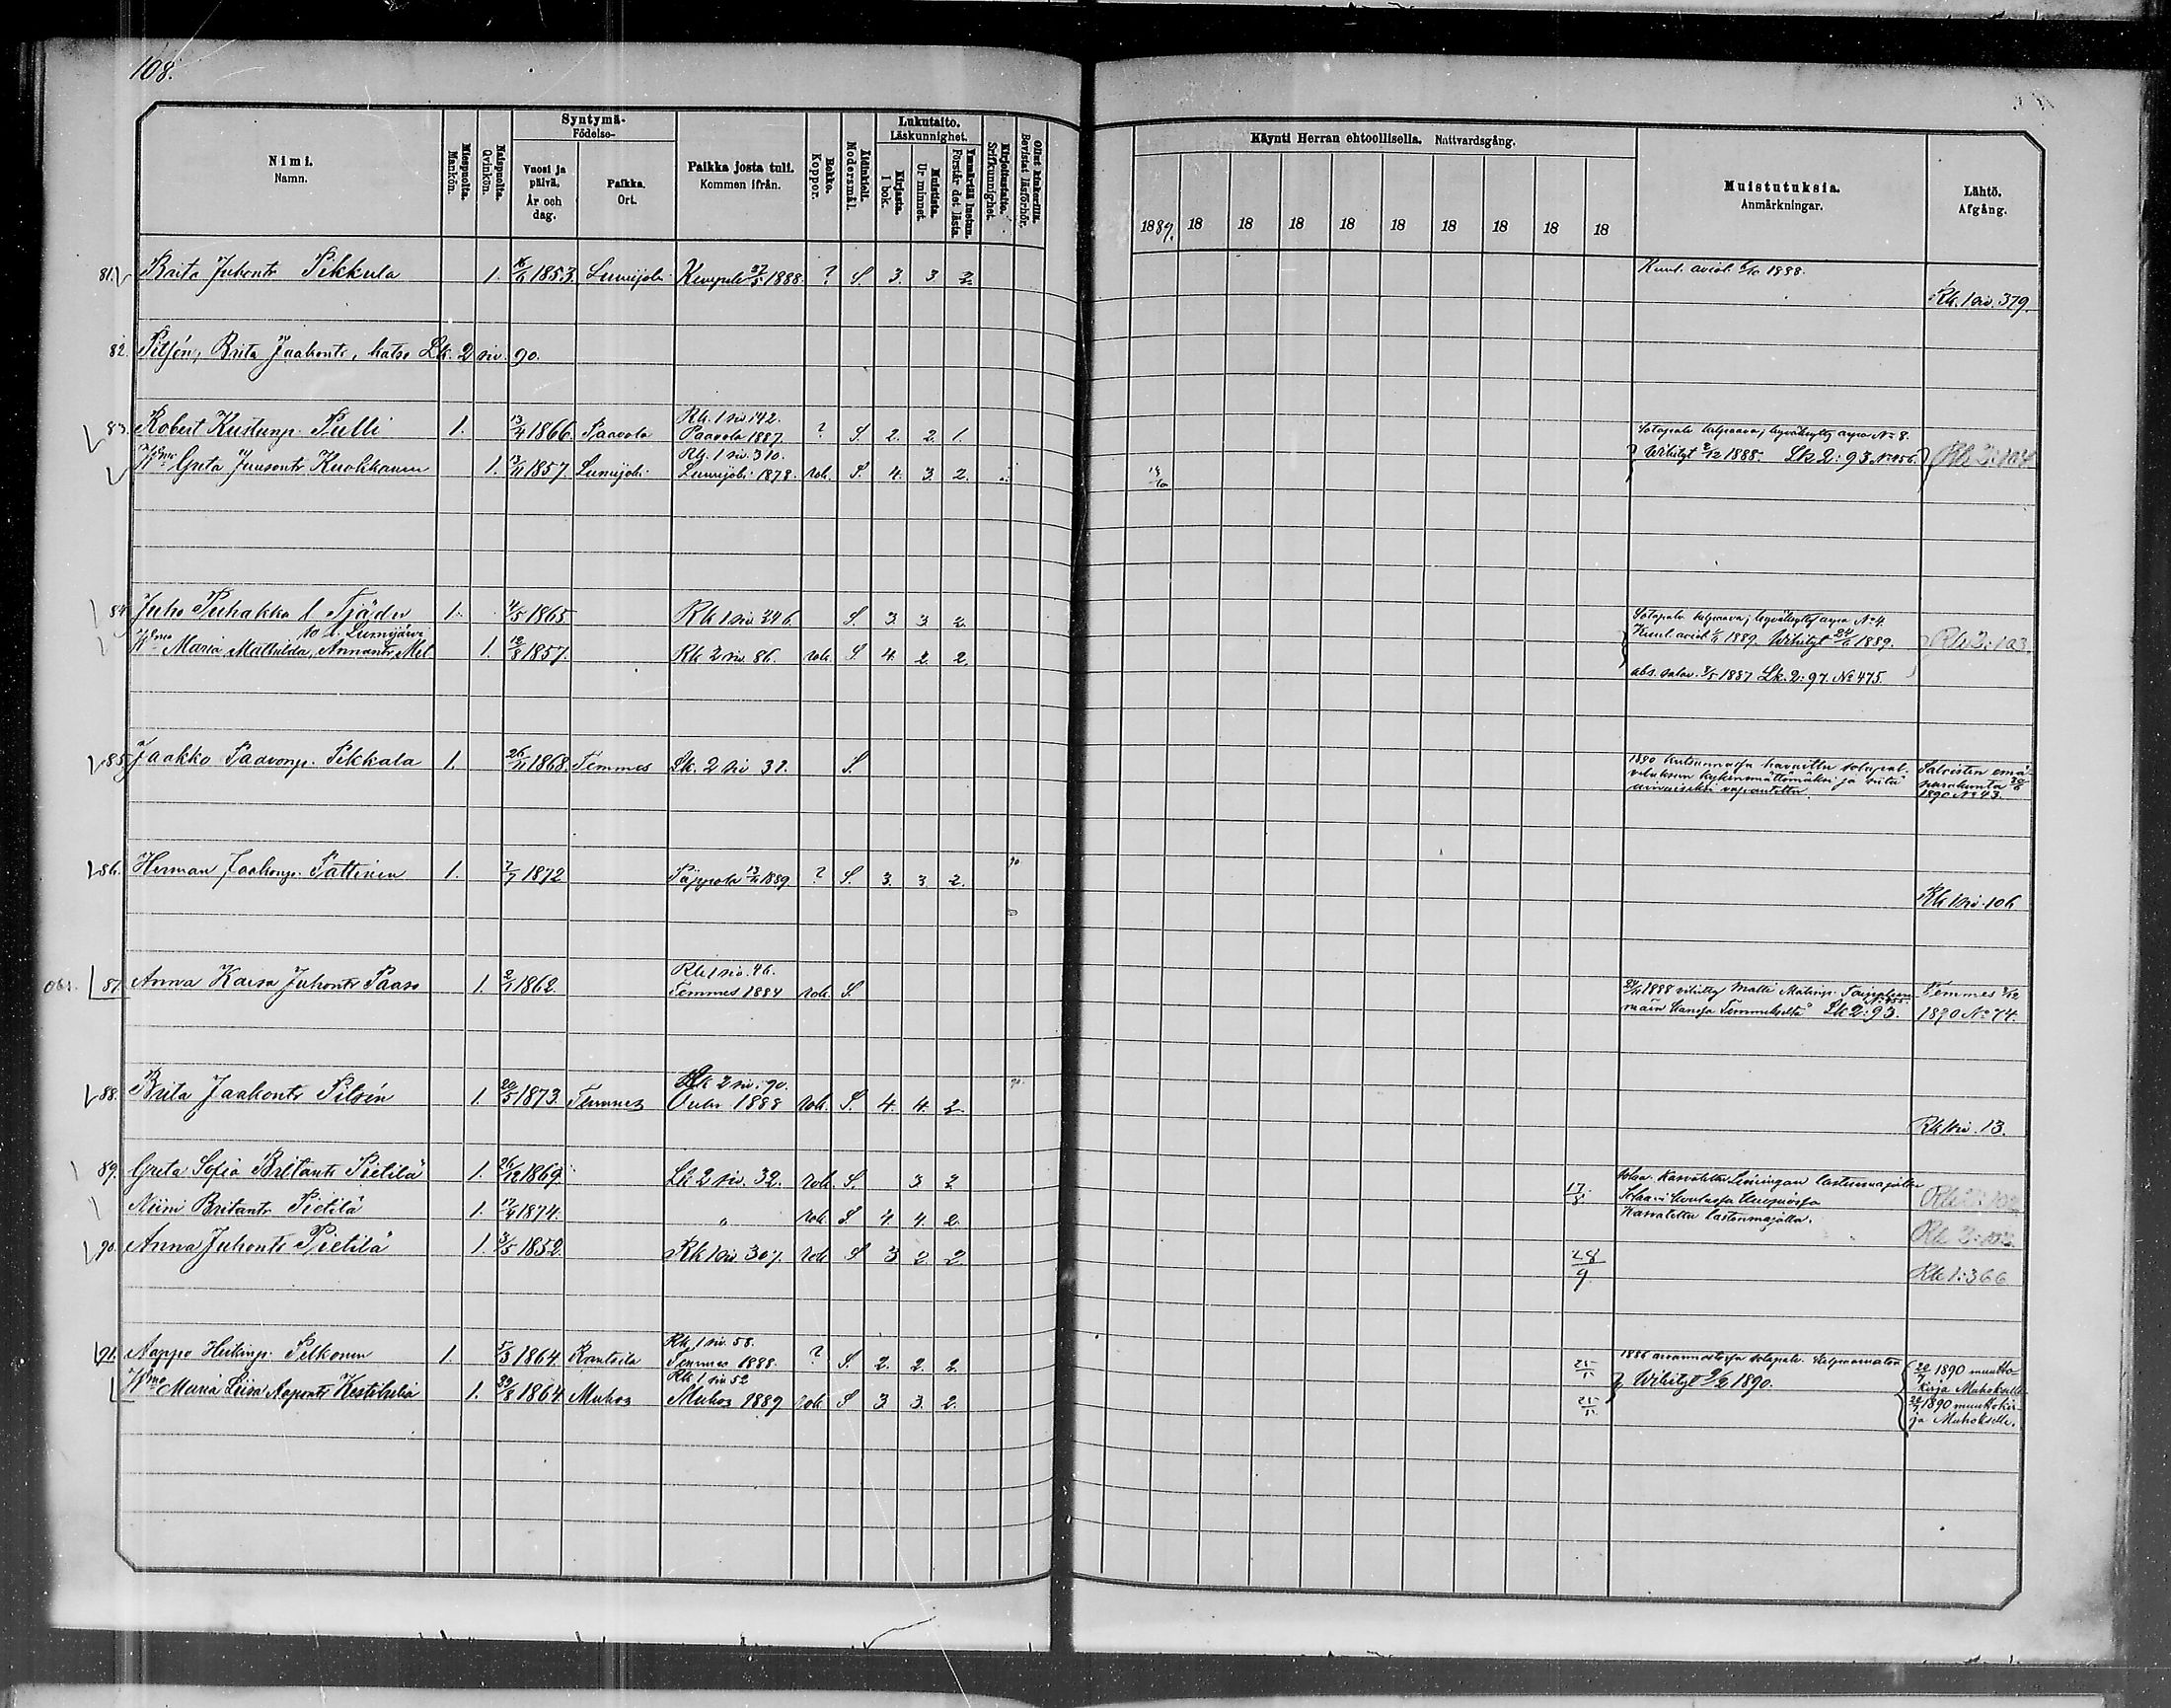 108.
Nimi.
Namn.
Miespuolta.
Mankön.
Naispuolta.
Qvinkön.
Syntymä-
Födelse-
Vuosi ja päivä.
År och dag.
Paikka.
Ort.
Paikka josta tuli.
Kommen ifrån.
Rokko.
Koppor.
Äidinkieli.
Modersmål.
Lukutaito.
Läskunnighet.
Kirjasta.
I bok.
Muistista.
Ur minnet.
Ymmärtää luetun.
Förstår det lästa.
Kirjoitustaito.
Srifkunnighet.
Ollut kinkerillä.
Bevistat läsförhör.
Käynti Herran ehtoollisella. Nattvardsgång.
1889. 18 18 18 18 18 18 18 18 18
Muistutuksia.
Anmärkningar.
Lähtö.
Afgång.
81. Brita Juhontr Pikkula 1. 16/6 1853. Lumijoki Kempele 27/5 1888. ? S. 3. 3 2. Kuul. aviol. 1888.
Rk. 1 siv. 379.
82. Piltsén, Brita Jaakontr, katso Lk. 2 siv. 90.
Rk. 1 siv 142.
83. Robert Kustunp. Pulli 1. 13/4 1866. Paavola Paavola 1887. ? S. 2. 2. 1. Sotapalv. kelpaava; hyväksytty arpa No 8.
Rk. 1 siv. 310.
Wmo Greta Juusontr Kuokkanen 1. 13/11 1857. Lumijoki Lumijoki 1878. rok. S. 4. 3. 2. Wihityt 2/12 1888. Lk 2: 93 No 456. Rk 2: 104
84. Juho Puhakka l. Tjäder 1. 4/5 1865 Rk 1 siv 246 S. 3 3 2. Sotapalv. kelpaava; hyväksytty arpa No 4.
Lumijärvi
Kuul. aviol. 1889. Wihityt 24/6 1889.
Wmo Maria Mathilda, Annantr Mel 1. 12/8 1857. Rk 2 siv. 86. rok. S. 4. 2. 2. Rk 2: 103.
abs. salav. 3/5 1887 Lk. 2: 97. No 475.
85. Jaakko Paavonp. Pikkala 1. 26/11 1868. Temmes Lk. 2 siv 31. S. 1890 kutsunnassa havaittu sotapal-
velukseen kykenemättömäksi ja siitä
ainaiseksi vapautettu.
Saloisten emä-
seurakunta 30/6
1890 No 43.
86. Herman Jaakonp. Pättinen 1. 7/7 1872 Piippola 1889 ? S. 3. 3 2. 90
Rk 1 siv. 106
Rk 1 siv. 46.
87. Anna Kaisa Juhontr Paaso 1. 2/1 1862. Temmes 1884 rok. S. 1888 vihitty Matti Matinp.
män kanssa Temmekseltä Lk 2: 93.
Temmes 8/12
1890 No 74.
Lk 2 siv. 90.
88. Brita Jaakontr Piltsén 1. 20/5 1873. Temmes Oulu 1888 rok. S. 4. 4. 2. 90.
Rk 1 siv. 13.
89. Greta Sofia Britantr Pietilä 1. 26/12 1869. Lk 2 siv. 32. rok. S. 3 2 17/8. Kasvatettu Limingan lastenmajalla
Niini Britantr Pietilä 1. 17/4 1874. " rok. S. 4. 4. 2. Kasvatettu lastenmajalla. Rk 2:
90. Anna Juhontr Pietilä 1. 3/5 1852. Rk 1 siv. 307. rok S 3 2 2. 28/9. Rk 1: 366
Rk. 1 siv. 58.
91. Aappo Heikinp. Pelkonen 1. 5/3 1864 Rantsila Temmes 1888. ? S. 2. 2. 2. 25/1 1886 arvannostossa sotapalv. kelpaamaton
Rk 1 siv 52
Wmo Maria Liisa Aapontr Kestikeliä 1. 30/8 1864 Muhos Muhos 1889 rok S 3. 3. 2. 25/1. Wihityt 2/2 1890.
22/7 1890 muutto-
kirja Muhokselle
22/7 1890 muuttokir-
ja Muhokselle.